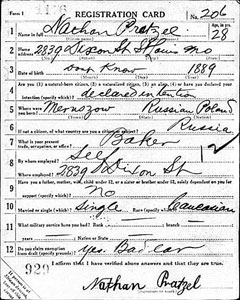 Form 1
REGISTRATION CARD
No. 206
1 Name in full Nathan Pratzel
Age, in yrs. 28
2 Home address 2839 Dixon St St Louis Mo
3 Date of birth Don't Know 1889
4 Are you a natural-born citizen, a naturalized citizen, an alien, or have you declared your
intention (specify which)? declared intention
5 Where were you born? Russian Poland
6 If not a citizen, of what country are you a citizen or subject? Russia
7 What is your present trade, occupation, or office? Baker
8 By whom employed? Self
Where employed? 2839 Dixon St
9 Have you a father, mother, wife, child under 12, or a sister or brother under 12, solely dependent on you for
support (specify which)? No
10 Married or single (which)? Single Race (specify which)? Caucasian
11 What military service have you had? Rank
Nation or State
12 Do you claim exemption from draft (specify grounds)? Yes.
I affirm that I have verified above answers and that they are true.
929
Nathan Pratzel